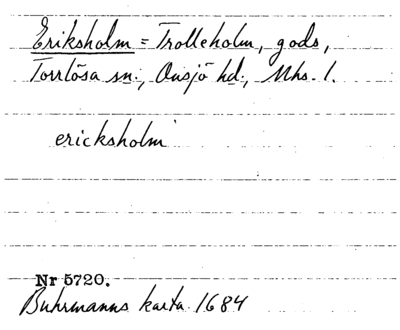 Eriksholm = Trolleholm, gods,
Torrlösa sn., Onsjö hd., Mhs. l.
ericksholm
Nr 5720.
Buhrmanns karta 1684